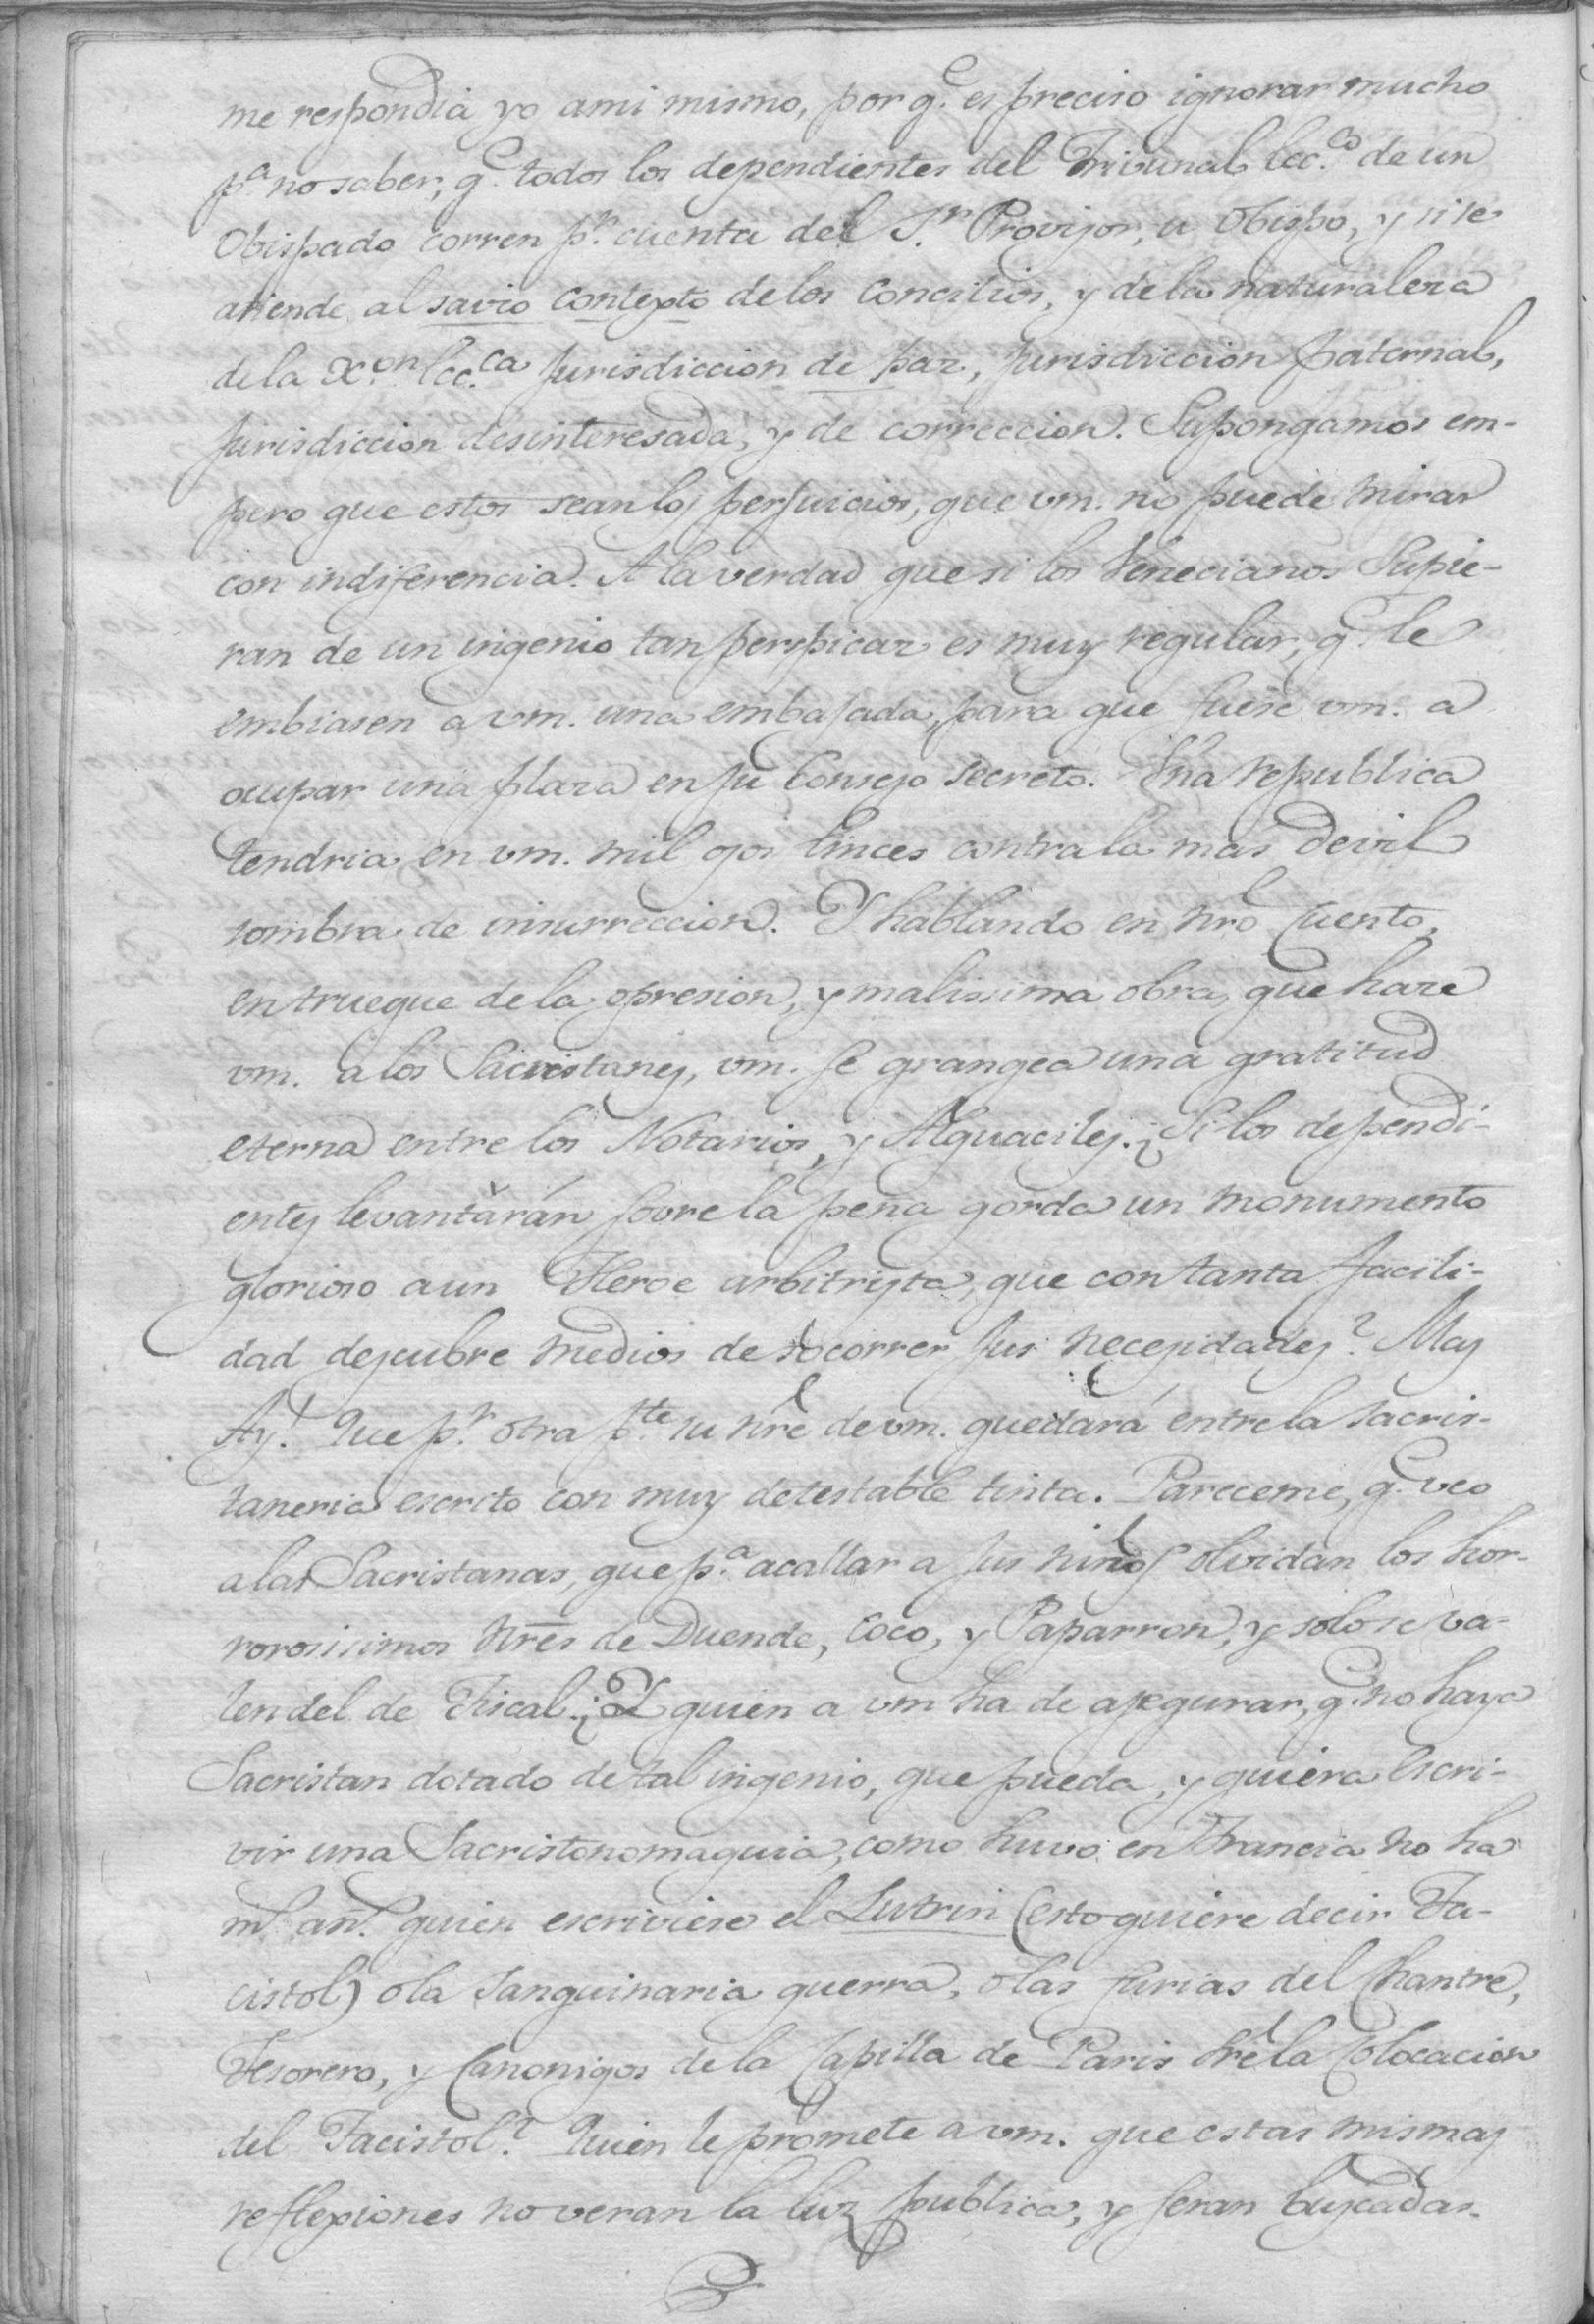 me respondia yo ami mismo, por q.e es preciso ignorar mucho
p.a no saber, q.e todos los dependientes del Tribunal Ecc.co de un
Obispado corren p.r cuenta del S.r Provisor, u Obispo, y si se
atiende al savio contexto de los Concilios, y de la naturaleza
de la X.on Ecc.ca Jurisdiccion de paz, Jurisdiccion paternal,
Jurisdiccion desinteresada, y de correccion. Supongamos em-
pero que estos sean los perjuicios, que vm. no puede mirar
con indiferencia. A la verdad que si los Venecianos Supie-
ran de un ingenio tan perspicaz es muy regular, q.e le
embiasen a vm. una embajada, para que fuese vm. a
ocupar una plaza en su Consejo secreto. Vna republica
tendria en vm. mil ojos linces contra la mas devil
sombra de insurreccion. Y hablando en nro Cuento,
en trueque de la opresion, y malissima obra, que haze
vm. a los Sacristanes, vm. se grangea una gratitud
eterna entre los Notarios, y Alguaciles. ¿Si los dependi-
entes levantarán sovre la peña gorda un monumento
glorioso a un Heroe arbitrista, que con tanta facili-
dad descubre medios de socorrer sus necesidades? Mas
Ay! Que p.r otra p.te su nre de vm. quedará entre la sacris-
taneria escrito con muy detestable tinta. Pareceme, q.e veo
a las Sacristanas, que p.a acallar a sus niños olvidan los hor-
rorosisimos nres de Duende, Coco, y Paparron, y solo se va-
len del de Fiscal. ¿Y quien a vm ha de asegurar, q.e no haya
Sacristan dotado de tal ingenio, que pueda, y quiera Escri-
vir una Sacristonomaquia, como huvo en Francia no ha
m.s an.s quien escriviese el Lutrin (esto quiere decir Fa-
cistol) o la sanguinaria guerra, o las furias del Chantre,
Tesorero, y Canonigos de la Capilla de Paris sre la Colocacion
del Facistol? Quien le promete a vm. que estas mismas
reflexiones no veran la luz publica, y seran buscadas